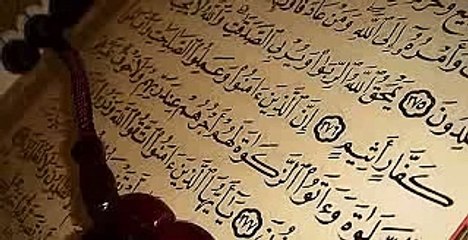 وَأَمْرُهُۥٓ إِلَى ٱللَّهِ وَمَنْ عَادَ فَأُو
لِدُونَ ٢٧٥ يَمْحَقُ ٱللَّهُ ٱلرِّبَوٰا۟ وَيُرْبِى ٱلصَّدَقَٰتِ وَٱللَّهُ لَا يُحِبُّ
كَفَّارٍ أَثِيمٍ ٢٧٦ إِنَّ ٱلَّذِينَ ءَامَنُوا۟ وَعَمِلُوا۟ ٱلصَّٰلِحَٰتِ
لَوٰةَ وَءَاتَوُا۟ ٱلزَّكَوٰةَ لَهُمْ أَجْرُهُمْ عِندَ رَبِّهِمْ وَلَا خَوْفٌ
نُونَ ٢٧٧ يَٰٓأَيُّهَا ٱلَّذِينَ ءَامَنُوا۟ ٱتَّقُوا۟ ٱللَّهَ وَذَرُوا۟